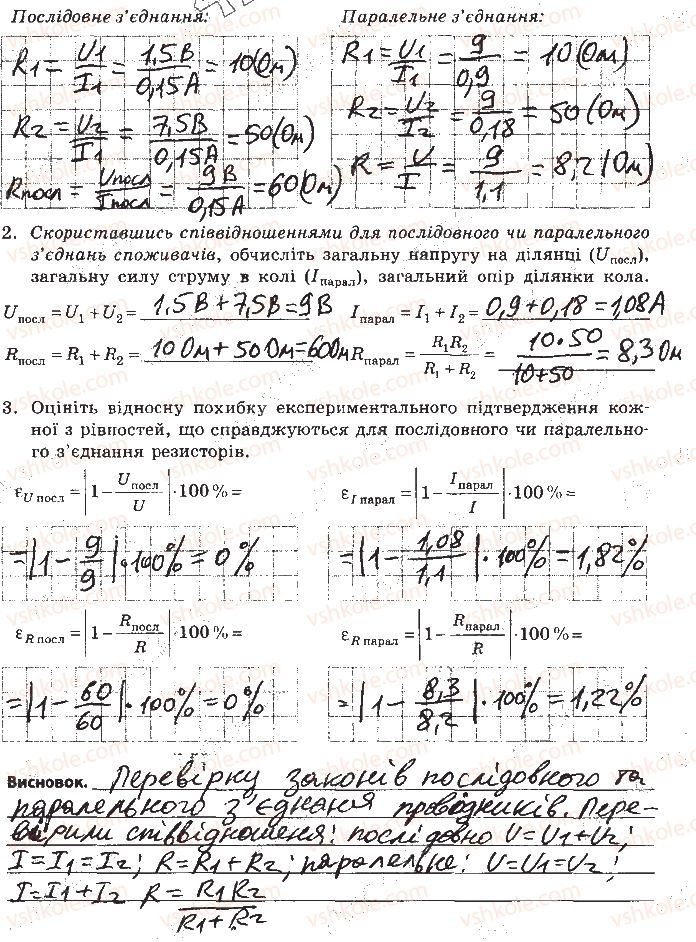 Послідовне з'єднання: Паралельне з'єднання:
R1 = U1/I1 = 1,5В/0,15А = 10(Ом) R1 = U1/I1 = 9/0,9 = 10(Ом)
R2 = U2/I1 = 7,5В/0,15А = 50(Ом) R2 = U2/I2 = 9/0,18 = 50(Ом)
Rпосл = Uпосл/Iпосл = 9В/0,15А = 60(Ом) R = U/I = 9/1,1 = 8,2(Ом)
2. Скориставшись співвідношеннями для послідовного чи паралельного
з'єднань споживачів, обчисліть загальну напругу на ділянці (Uпосл),
загальну силу струму в колі (Iпарал), загальний опір ділянки кола.
Uпосл = U1 + U2 = 1,5В + 7,5В = 9В Iпарал = I1 + I2 = 0,9 + 0,18 = 1,08А
Rпосл = R1 + R2 = 10Ом + 50Ом = 60Ом Rпарал = R1R2/(R1 + R2) = 10·50/(10+50) = 8,3Ом
3. Оцініть відносну похибку експериментального підтвердження кож-
ної з рівностей, що справджуються для послідовного чи паралельно-
го з'єднання резисторів.
εU посл = |1 − Uпосл/U| · 100 % = εI парал = |1 − Iпарал/I| · 100 % =
= |1 − 9/9| · 100% = 0% = |1 − 1,08/1,1| · 100% = 1,82%
εR посл = |1 − Rпосл/R| · 100 % = εR парал = |1 − Rпарал/R| · 100 % =
= |1 − 60/60| · 100% = 0% = |1 − 8,3/8,2| · 100% = 1,22%
Висновок. Перевірку законів послідовного та
паралельного з'єднання провідників. Пере-
вірили співвідношеня: послідовно U = U1 + U2;
I = I1 = I2; R = R1 + R2; паралельне: U = U1 = U2;
I = I1 + I2 R = R1R2/(R1 + R2)
vshkole.com